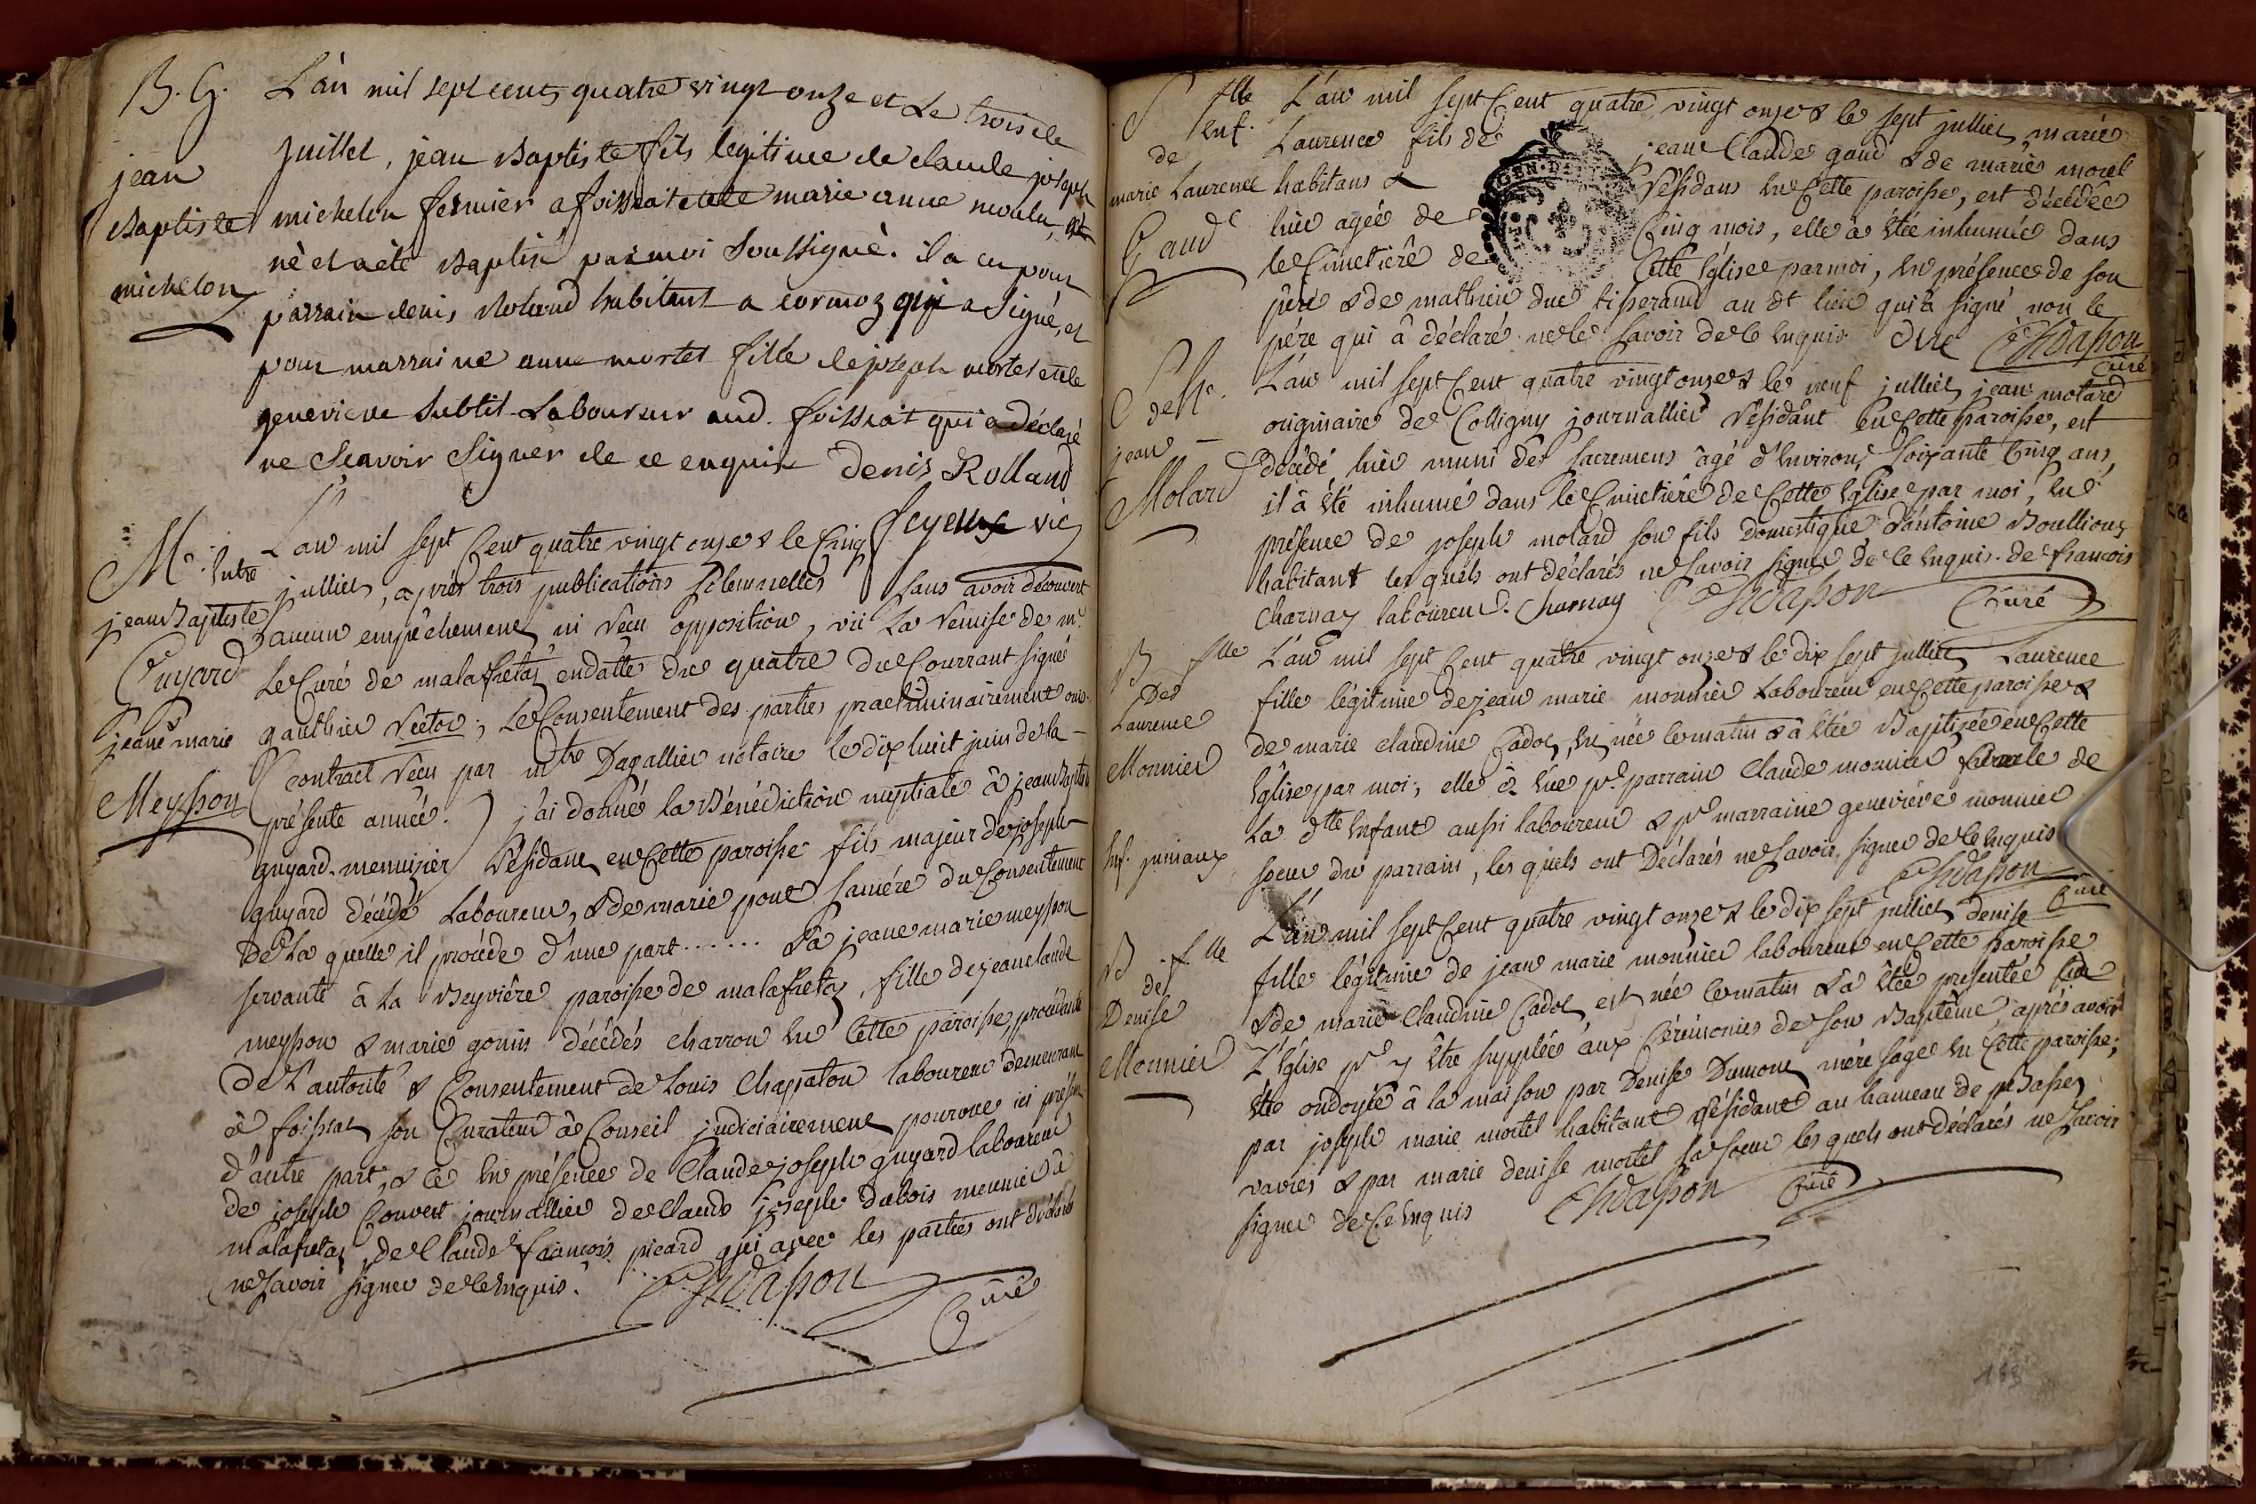 B. G. L'an mil sept cents quatre vingt onze et Le trois de
juillet, jean Baptiste fils legitime de claude joseph
jean
Baptiste michelon fermier a foissiat et de marie anne moulu, est
né et a été Baptisé par moi soussigné. il a eu pour
michelon
parrain denis Roland habitant a cormoz qui a signé, et
pour marraine anne mortel fille de joseph mortel et de
genevieve subtil Laboureur aud. foissiat qui a déclaré
ne scavoir signer de ce enquise denis Rolland
feyeux vic
M.e L'an mil sept Cent quatre vingt onze & le Cinq
Entre juillet, après trois publications solemnelles sans avoir découvert
jean Baptiste aucun empêchement ni reçu opposition, vû La remise de mr.
Guyard Le Curé de malafretaz en datte du quatre du Courrant signé
& jeane marie gauthier Recteur; Le Consentement des parties praeliminairement ouï
(contract reçu par mtre Dagallier notaire le dix huit juin de la
Meysson présente année.) j'ai donné la Bénédiction nuptiale à jean Baptiste
guyard menuizier résidant en Cette paroisse fils majeur de joseph
guyard décédé Laboureur, & de marie pont sa mére du Consentement
de La quelle il procède d'une part...... & à jeane marie meysson
servante à La Beyviére paroisse de malafretaz, fille de jean claude
meysson & marie gonin décédés charron en Cette paroisse, procédante
de L'autorité & Consentement de Louis Chapaton laboureur demeurant
à foissiat son Curateur & Conseil judiciairement pourvue ici présent
d'autre part, & ce en présence de Claude joseph guyard laboureur
de joseph Convert journallier de Claude joseph dubois meunier à
malafretaz, de Claude françois picard qui avec les parties ont déclarés
ne savoir signer de Ce enquis. Chvasson
Curé
S flle L'an mil sept Cent quatre vingt onze & le sept juillet, marie
Enf. Laurence fils de jean Claude gaud & de marie morel
de
marie Laurence habitans & résidans en Cette paroisse, est décédée
Gaud hier agée de Cinq mois, elle a êtée inhumée dans
le Cimetiére de Cette Eglise par moi, en présence de son
pére & de mathieu duc tisserand au dt lieu qui a signé, non le
pére qui a déclaré ne le savoir de Ce enquis. duc Chvasson
Curé
S L'an mil sept Cent quatre vingt onze & le neuf juillet, jean molard
originaire de Colligny journallier résidant en Cette paroisse, est
jean décédé hier muni des sacremens âgé d'environ soixante Cinq ans,
Molard il a été inhumé dans le Cimetiére de Cette Eglise par moi, en
présence de joseph molard son fils domestique d'antoine Boullioux
habitant les quels ont déclarés ne savoir signer de Ce enquis. de françois
Charnay laboureur. Charnay Chvasson Curé
B flle L'an mil sept Cent quatre vingt onze & le dix sept juillet Laurence
De fille légitime de jean marie monnier Laboureur en Cette paroisse &
Laurence
de marie claudine Cadot, est née Ce matin & a êtée Baptisée en Cette
Monnier Eglise par moi; elle a eue pr. parrain Claude monnier oncle de
La dtte Enfant aussi laboureur & pr marraine geneviéve monnier
Enf. jumaux soeur du parrain, les quels ont déclarés ne savoir signer de Ce enquis
Chvasson
Curé
L'an mil sept Cent quatre vingt onze & le dix sept juillet denise
B flle fille légitime de jean marie monnier laboureur en Cette paroisse
de & de marie Claudine Cadot est née Ce matin & a êtée presentée à
Denise L'Eglise pr y être suppléé aux Cérémonies de son Baptême après avoir
Monnier été ondoyée à la maison par Denise Dumont mére sage en Cette paroisse;
par joseph marie mortel habitant résidant au hameau de
vavres & par marie denise mortel sa soeur les quels ont déclarés ne savoir
signer de Ce enquis Chvasson Curé